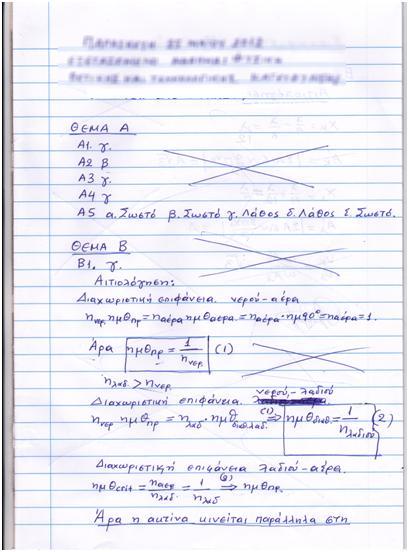 ΘΕΜΑ Α
Α1. γ.
Α2 β
Α3 γ.
Α4 γ
Α5 α. Σωστό β. Σωστό γ. Λάθος δ. Λάθος ε. Σωστό.
ΘΕΜΑ Β
Β1. γ.
Αιτιολόγηση:
Διαχωριστική επιφάνεια νερού-αέρα
nνερ. ημθπρ = nαέρα ημθαερα. = nαέρα · ημ90° = nαέρα = 1.
Άρα ημθπρ = 1/nνερ. (1)
nλαδ. > nνερ.
Διαχωριστική επιφάνεια νερού-λαδιού
nνερ ημθπρ = nλαδ · ημθδιαθλαδ. (1)⇒ ημθδιαθ. = 1/nλαδιού (2)
Διαχωριστική επιφάνεια λαδιού-αέρα.
ημθcrit = nαερ/nλαδ. = 1/nλαδ (2)⇒ ημθπρ.
Άρα η ακτίνα κινείται παράλληλα στη